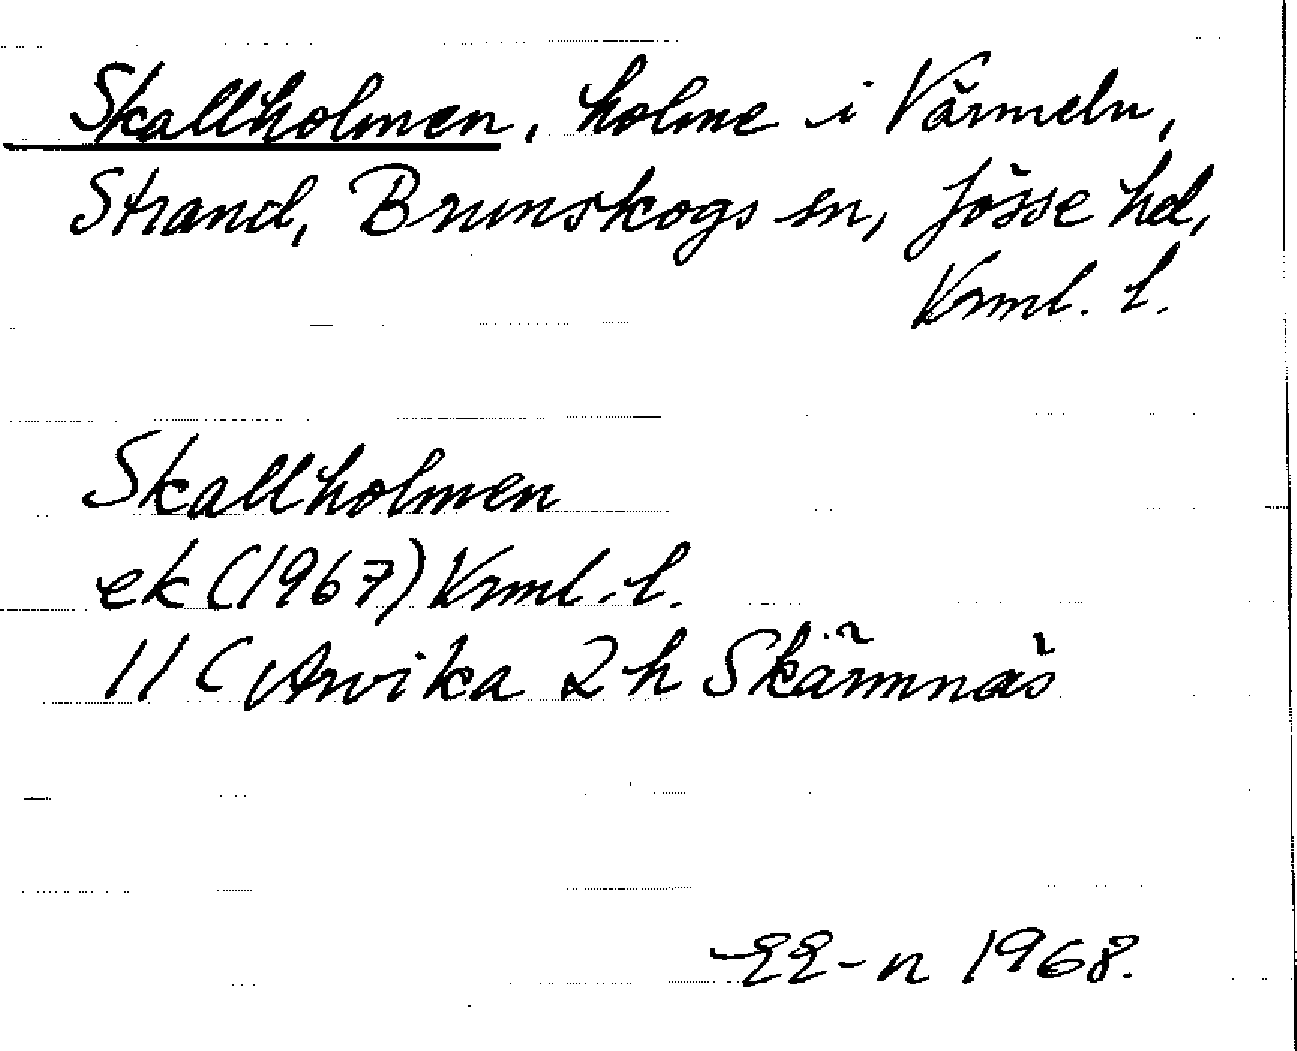 Skallholmen, holme i Värmeln,
Strand, Brunskogs sn, Jösse hd,
Vrml. l.
Skallholmen
ek (1967) Vrml. l.
11 C Arvika 2 h Skärmnäs
EE-n 1968.